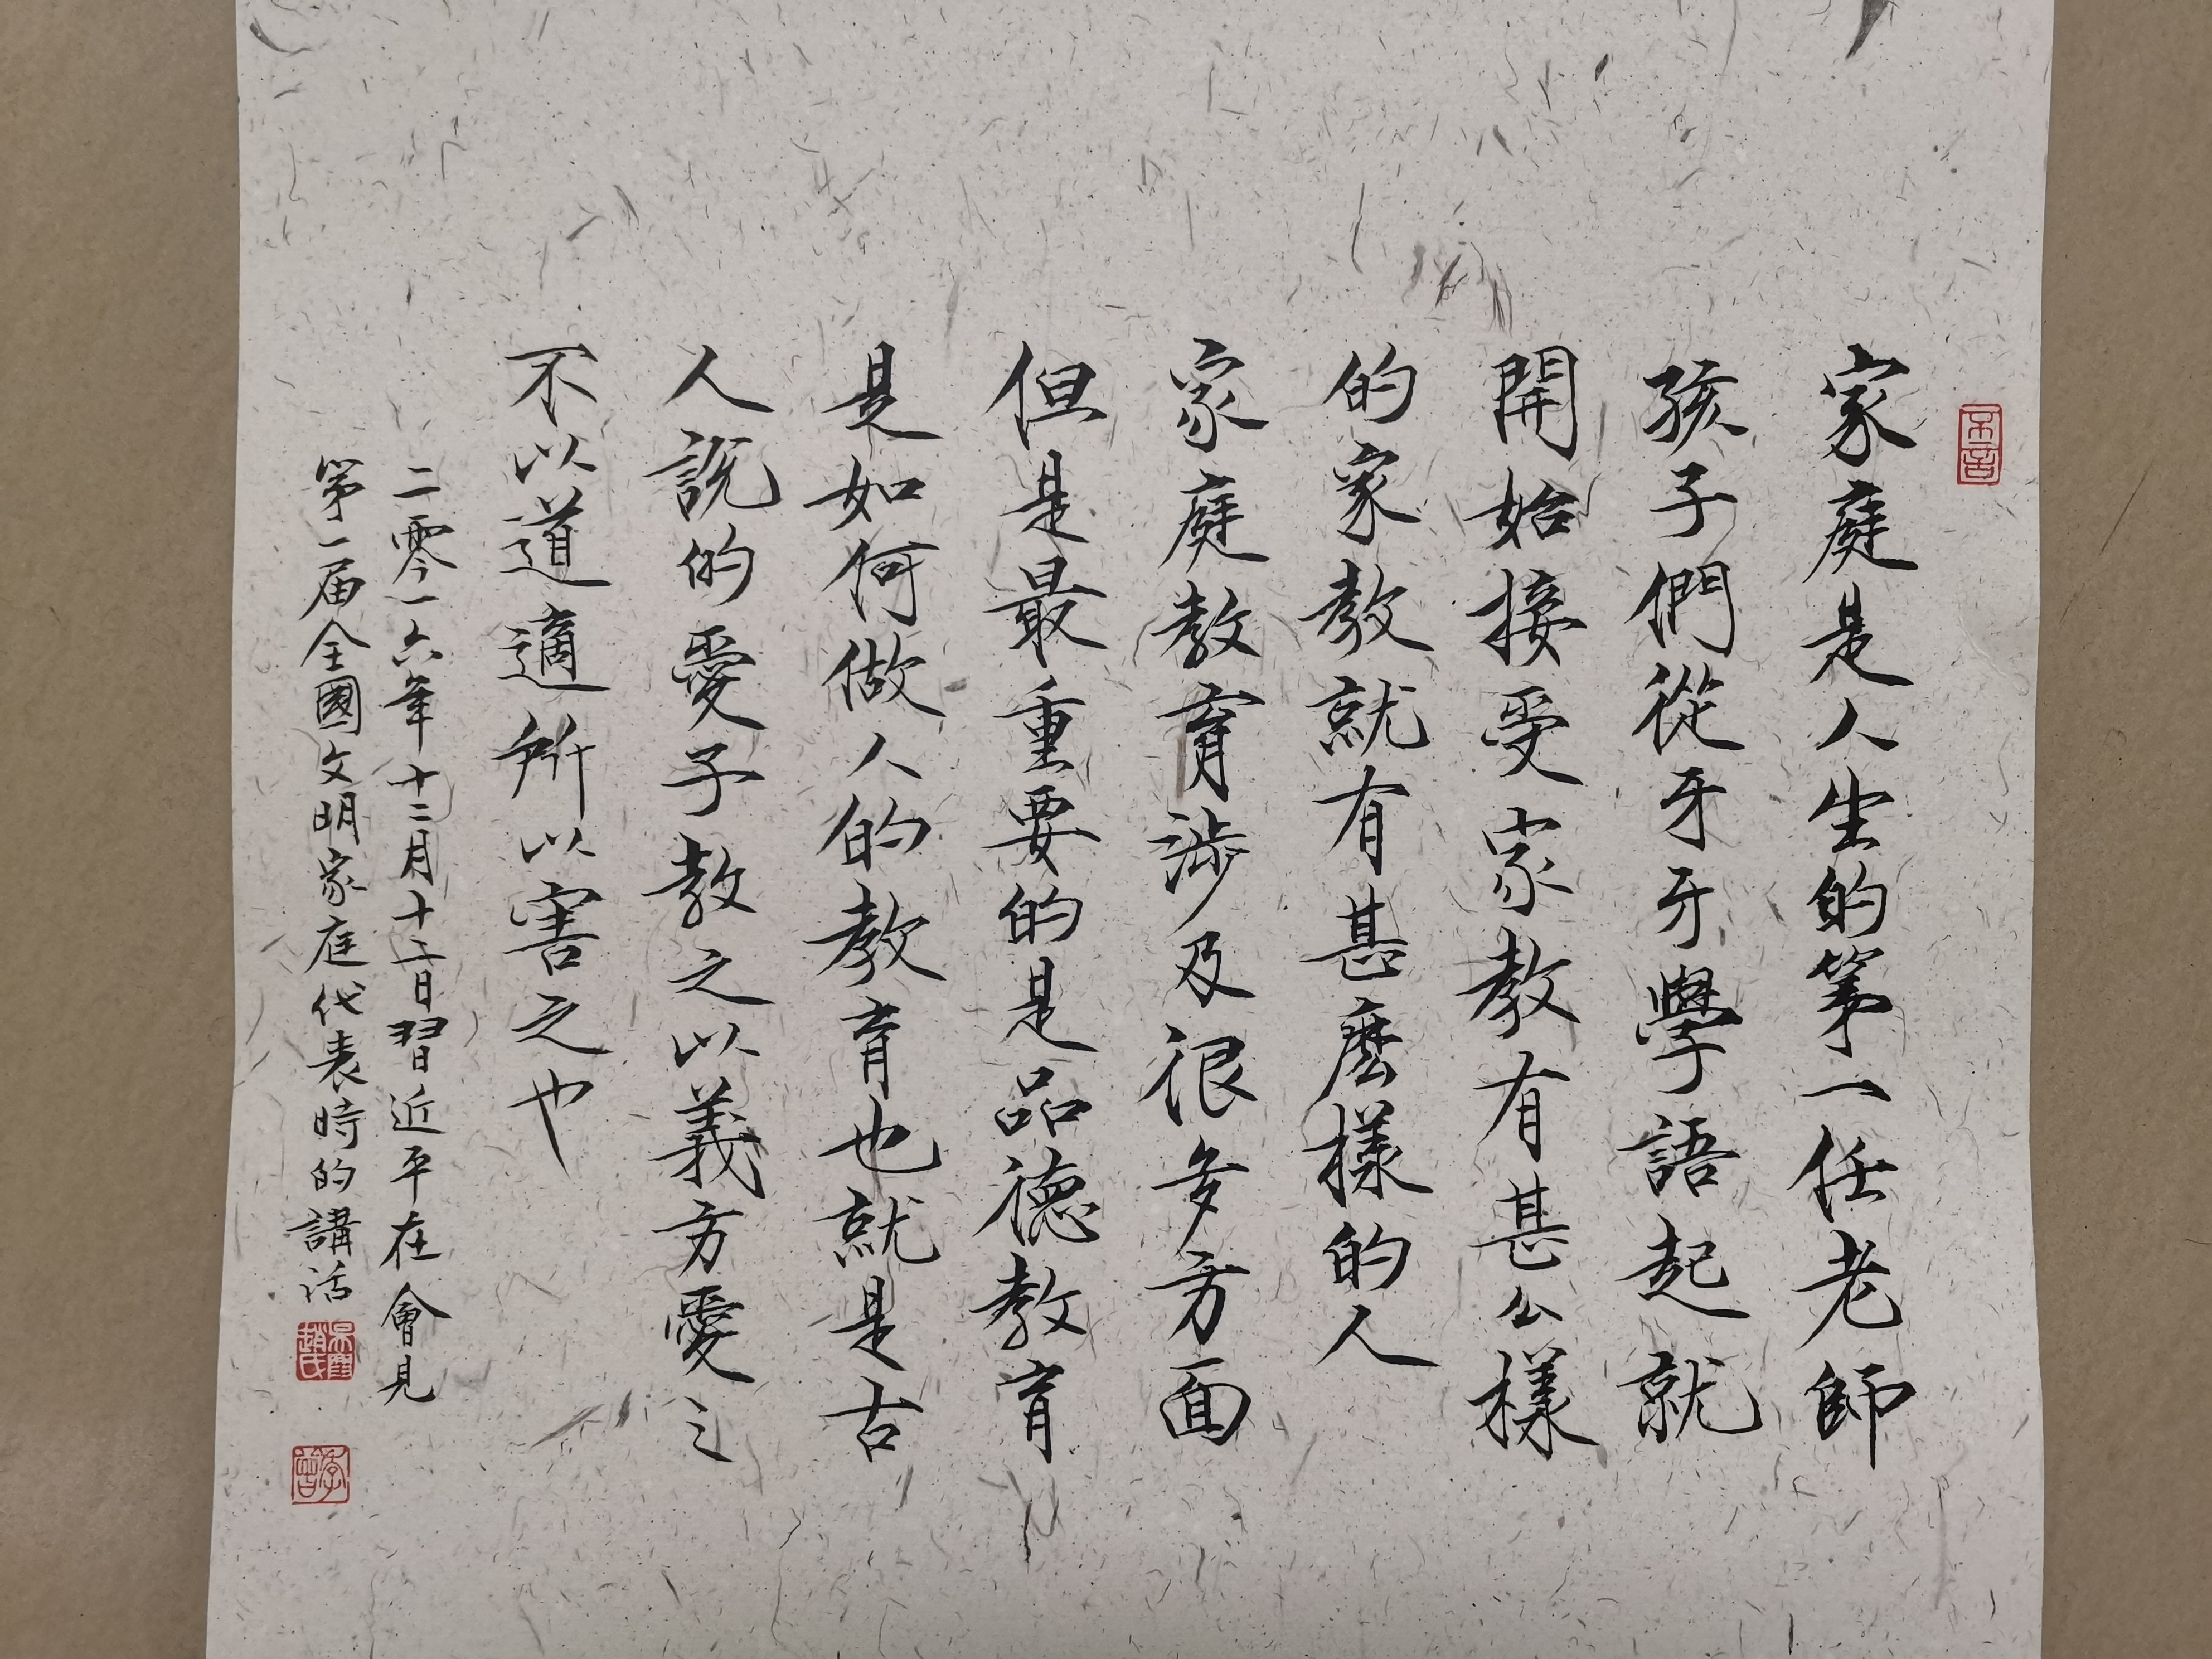 家庭是人生的第一任老師
孩子們從牙牙學語起就
開始接受家教有甚么樣
的家教就有甚麼樣的人
家庭教育涉及很多方面
但是最重要的是品德教育
是如何做人的教育也就是古
人説的愛子教之以義方愛之
不以道適所以害之也
二零一六年十二月十二日習近平在會見
第一届全國文明家庭代表時的講話